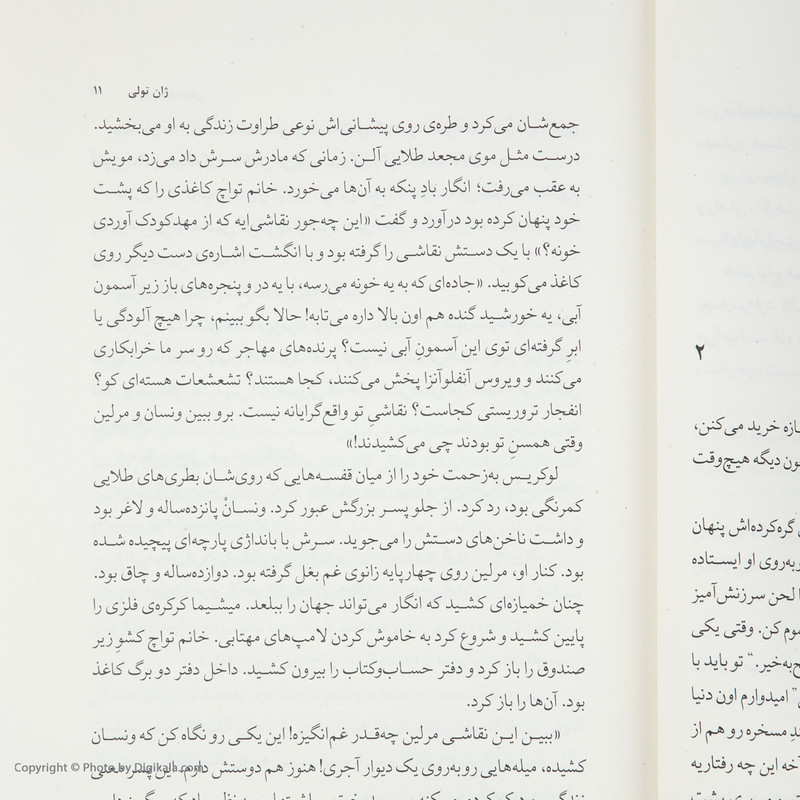 ژان تولی ۱۱
جمع‌شان می‌کرد و طره‌ی روی پیشانی‌اش نوعی طراوت زندگی به او می‌بخشید.
درست مثل موی مجعد طلایی آلن. زمانی که مادرش سرش داد می‌زد، مویش
به عقب می‌رفت؛ انگار بادِ پنکه به آن‌ها می‌خورد. خانم تواچ کاغذی را که پشت
خود پنهان کرده بود درآورد و گفت «این چه‌جور نقاشی‌ایه که از مهدکودک آوردی
خونه؟» با یک دستش نقاشی را گرفته بود و با انگشت اشاره‌ی دست دیگر روی
کاغذ می‌کوبید. «جاده‌ای که به یه خونه می‌رسه، با یه در و پنجره‌های باز زیر آسمون
آبی، یه خورشید گنده هم اون بالا داره می‌تابه! حالا بگو ببینم، چرا هیچ آلودگی یا
ابرِ گرفته‌ای توی این آسمونِ آبی نیست؟ پرنده‌های مهاجر که رو سر ما خرابکاری
می‌کنند و ویروس آنفلوآنزا پخش می‌کنند، کجا هستند؟ تشعشعات هسته‌ای کو؟
انفجار تروریستی کجاست؟ نقاشیِ تو واقع‌گرایانه نیست. برو ببین ونسان و مرلین
وقتی همسنِ تو بودند چی می‌کشیدند!»
لوکریس به‌زحمت خود را از میان قفسه‌هایی که روی‌شان بطری‌های طلایی
کمرنگی بود، رد کرد. از جلو پسر بزرگش عبور کرد. ونسانْ پانزده‌ساله و لاغر بود
و داشت ناخن‌های دستش را می‌جوید. سرش با بانداژی پارچه‌ای پیچیده شده
بود. کنار او، مرلین روی چهارپایه زانوی غم بغل گرفته بود. دوازده‌ساله و چاق بود.
چنان خمیازه‌ای کشید که انگار می‌تواند جهان را ببلعد. میشیما کرکره‌ی فلزی را
پایین کشید و شروع کرد به خاموش کردن لامپ‌های مهتابی. خانم تواچ کشوِ زیر
صندوق را باز کرد و دفتر حساب‌وکتاب را بیرون کشید. داخل دفتر دو برگ کاغذ
بود. آن‌ها را باز کرد.
«ببین این نقاشی مرلین چه‌قدر غم‌انگیزه! این یکی رو نگاه کن که ونسان
کشیده، میله‌هایی روبه‌روی یک دیوار آجری! هنوز هم دوستش دارم. این پسر
۲
خرید می‌کنن،
دیگه هیچ‌وقت
گره‌کرده‌اش پنهان
روی او ایستاده
لحن سرزنش‌آمیز
کن. وقتی یکی
تو باید با
امیدوارم اون دنیا
مسخره رو هم از
آخه این چه رفتاریه
Copyright © Photo by Digikala.com